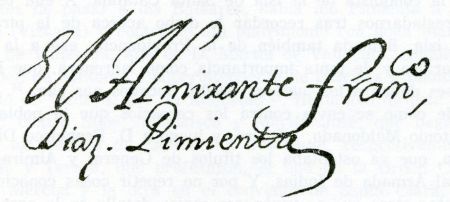 El Almirante fran^co,
Diaz. Pimienta